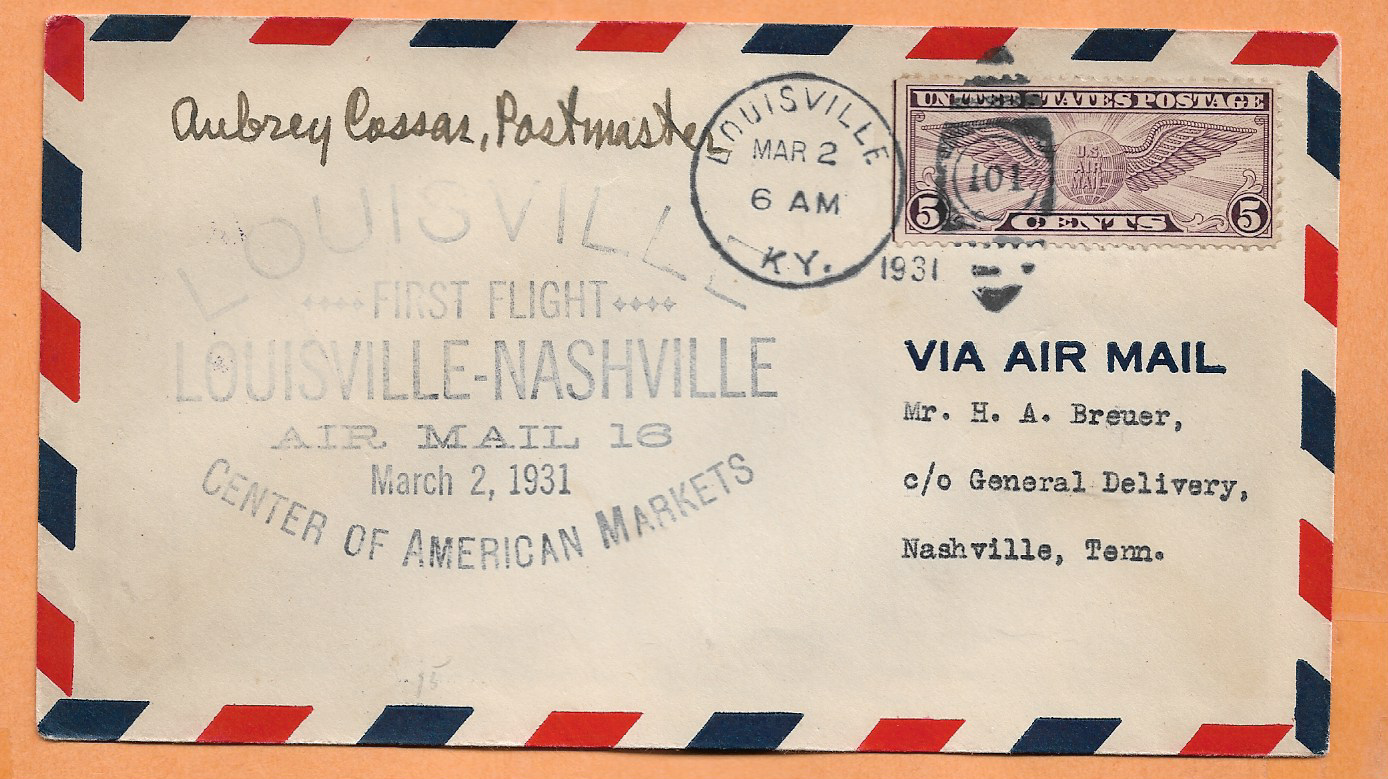 Aubrey Cossar, Postmaster
LOUISVILLE
MAR 2
6 AM
KY.
1931
101
UNITED STATES POSTAGE
U.S.
AIR
MAIL
5 CENTS 5
LOUISVILLE
FIRST FLIGHT
LOUISVILLE-NASHVILLE
AIR MAIL 16
March 2, 1931
CENTER OF AMERICAN MARKETS
VIA AIR MAIL
Mr. H. A. Breuer,
c/o General Delivery,
Nashville, Tenn.